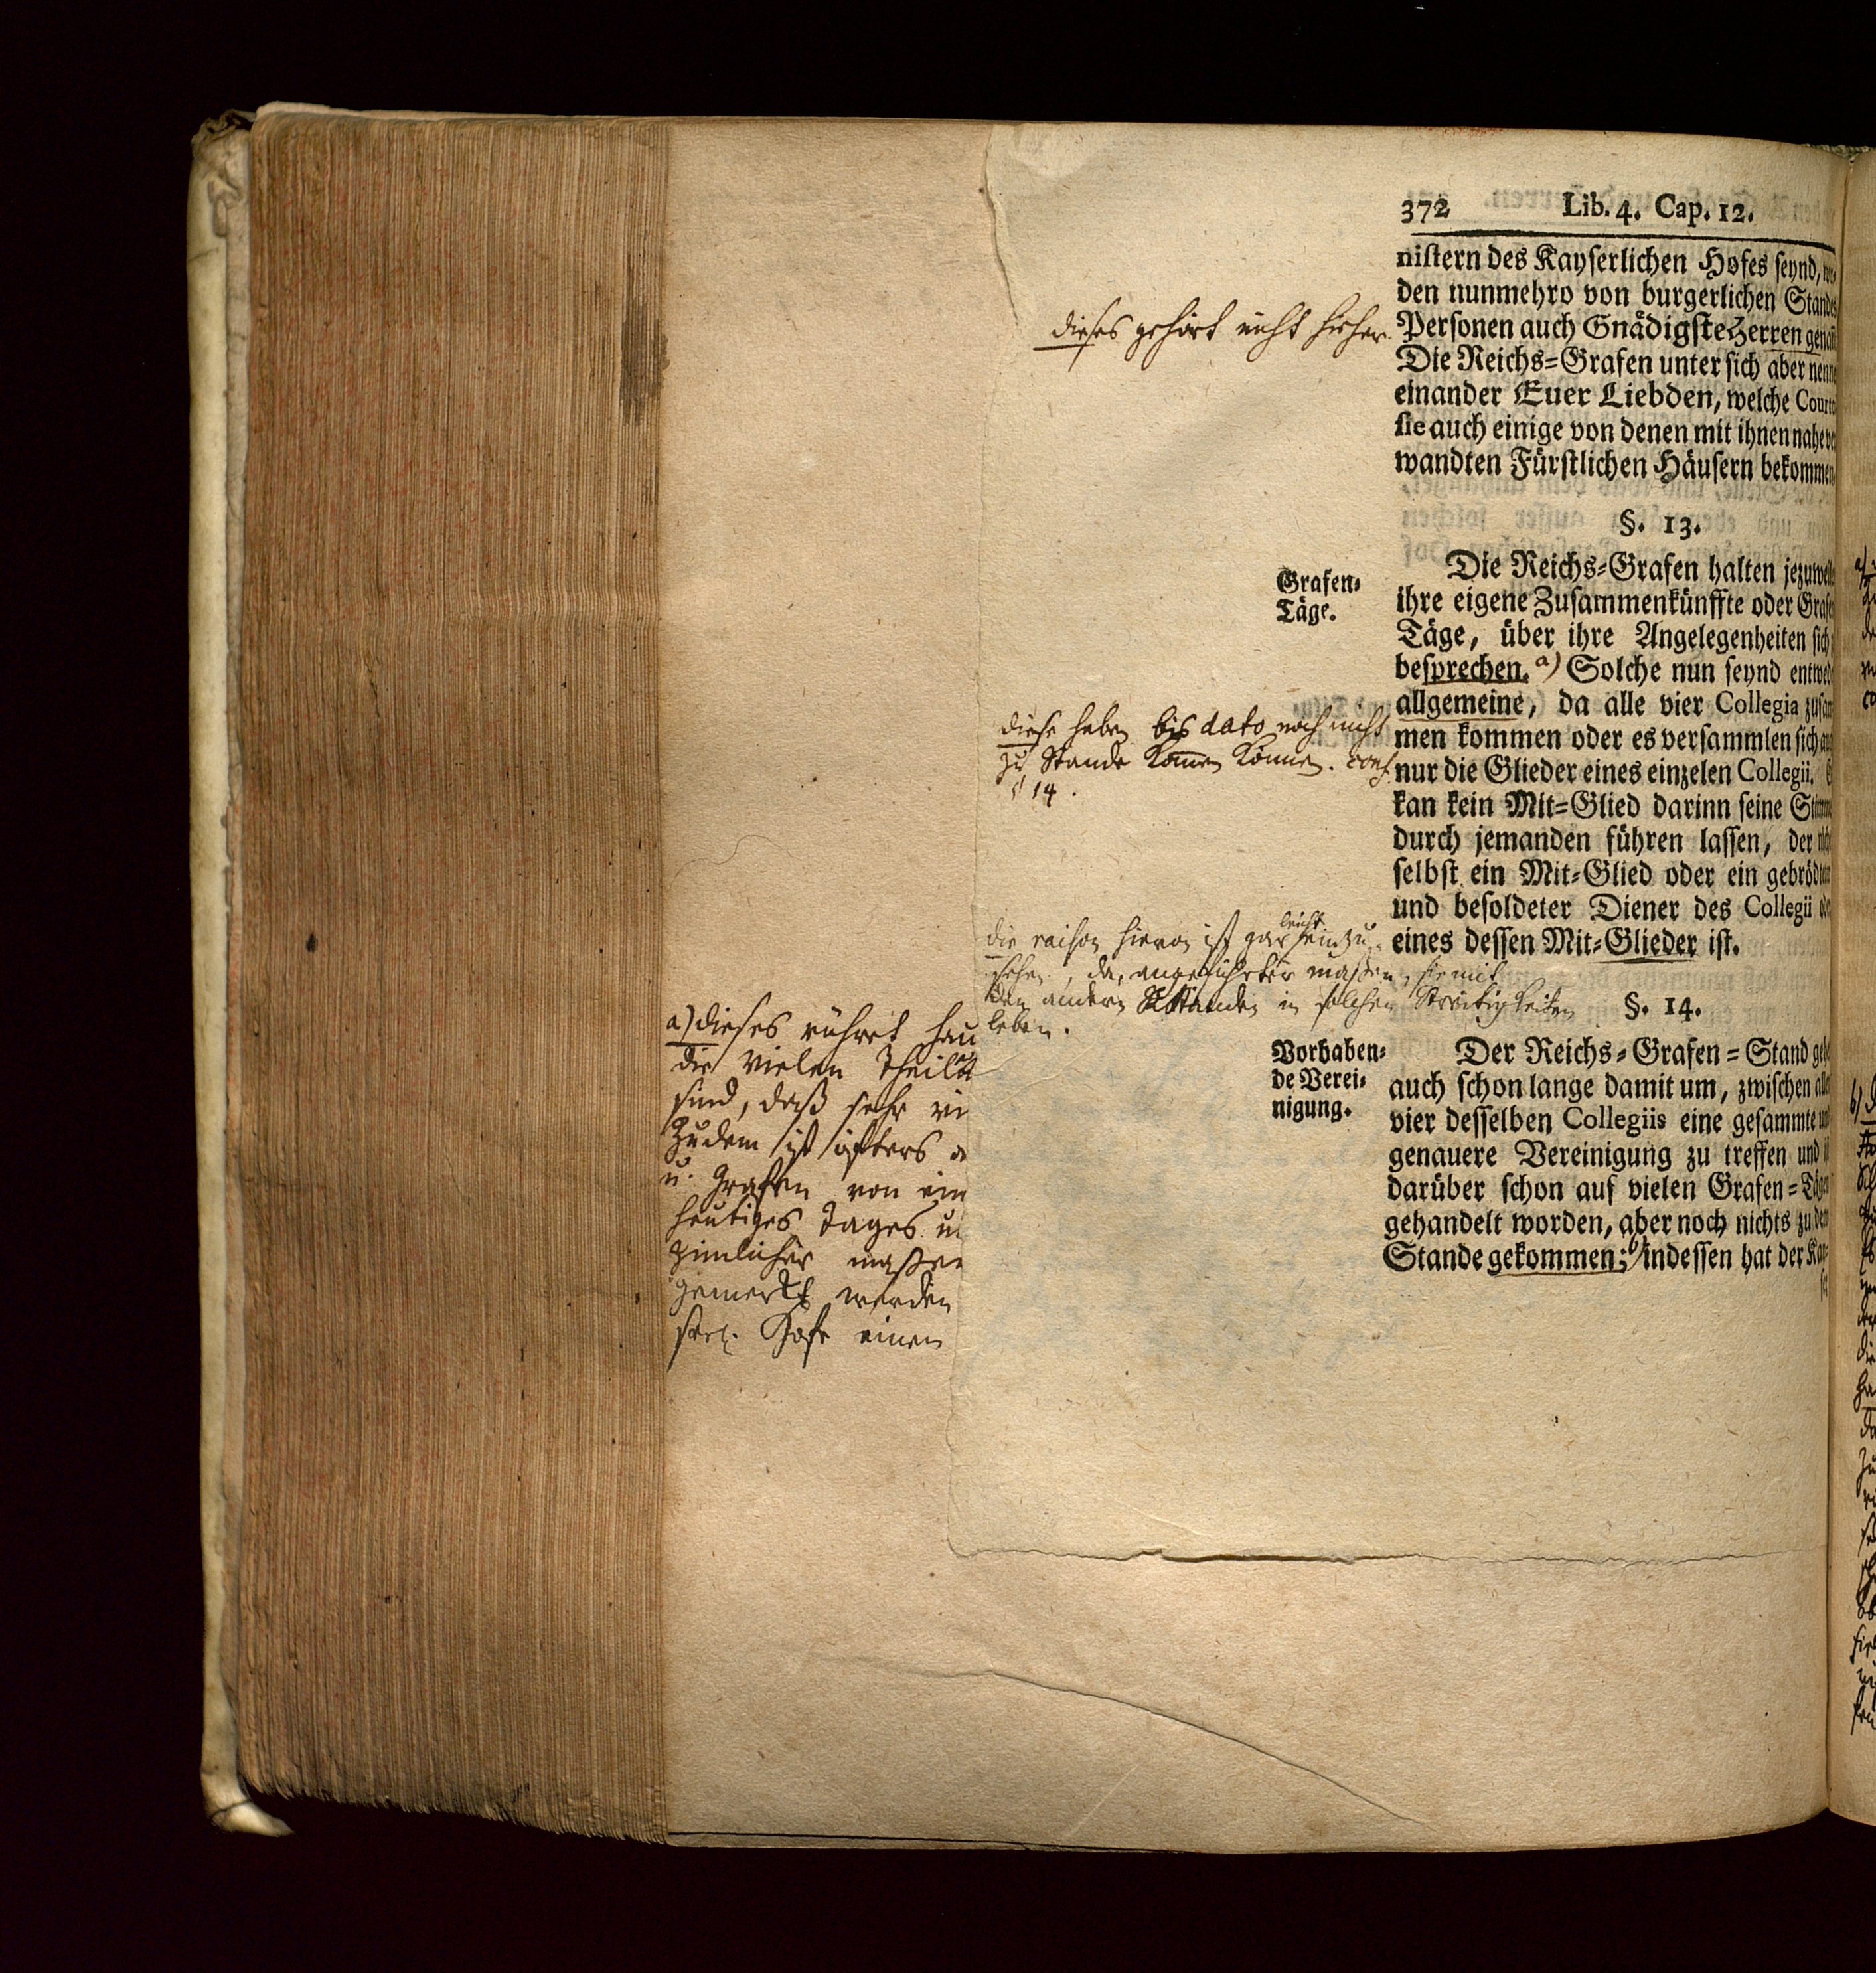 372 Lib. 4. Cap. 12.
nistern des Kayserlichen Hofes seynd,
den nunmehro von burgerlichen Standes
Personen auch Gnädigste Herren genañt
Die Reichs-Grafen unter sich aber nenne
einander Euer Liebden, welche Courto
sie auch einige von denen mit ihnen nahe ver
wandten Fürstlichen Häusern bekommen.
dieses gehört nicht hieher.
§. 13.
Grafen-
Täge.
Die Reichs-Grafen halten jezuweile
ihre eigene Zusammenkünffte oder Grafe
Täge, über ihre Angelegenheiten sich
besprechen. a) Solche nun seynd entwed
allgemeine, da alle vier Collegia zusam
men kommen oder es versammlen sich au
nur die Glieder eines einzelen Collegii.
kan kein Mit-Glied darinn seine Stimm
durch jemanden führen lassen, der nich
selbst ein Mit-Glied oder ein gebrödter
und besoldeter Diener des Collegii ode
eines dessen Mit-Glieder ist.
diese haben bis dato noch nicht
zu Stande kom̄en können. conf.
§ 14.
die raison hievon ist gar leicht einzu-
sehen, da, angeführter maßen, sie mit
den andern Ständen in solchen Streitigkeiten
leben.
§. 14.
Vorhaben-
de Verei-
nigung.
Der Reichs-Grafen-Stand gehe
auch schon lange damit um, zwischen alle
vier desselben Collegiis eine gesammte und
genauere Vereinigung zu treffen und
darüber schon auf vielen Grafen-Tägen
gehandelt worden, aber noch nichts zu dem
Stande gekommen; b) indessen hat der Kay-
a) dieses rühret hau
die vielen Theil
sind, daß sehr vi
Zudem ist öfters
u. Grafen von ein
heutiges Tages u
zimlicher maßen
gemerkt werden
serl. Hofe einen